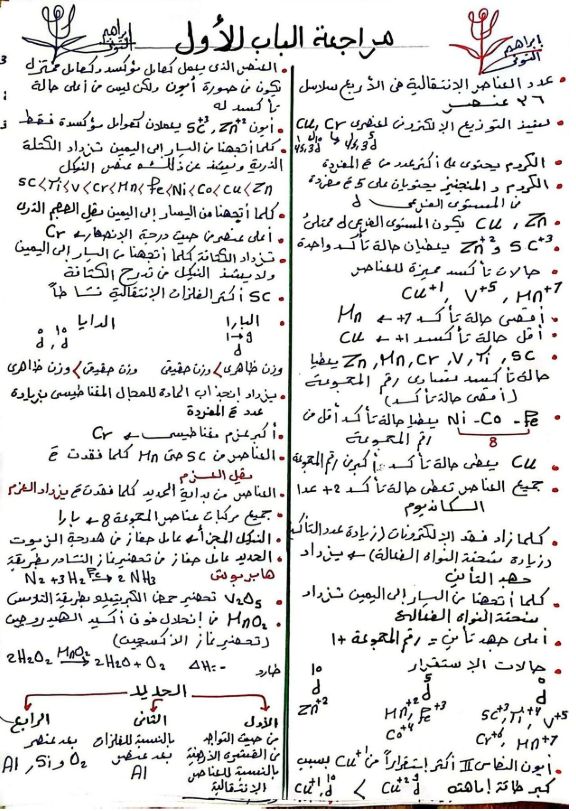 مراجعة الباب الأول
ابراهيم
النونى
ابراهيم
النونى
• عدد العناصر الإنتقالية فى الأربع سلاسل
٣٦ عنصر
يشذ التوزيع الإلكترونى لعنصرى Cu, Cr
4s¹, 3d¹⁰ 4s¹, 3d⁵
• الكروم يحتوى على أكثر عدد من e مفردة
• الكروم و المنجنيز يحتويان على 5 e مفردة
من المستوى الفرعى d
• Cu, Zn يكون المستوى الفرعى d ممتلئ
• Sc⁺³ و Zn⁺² يعطيان حالة تأكسد واحدة
• حالات تأكسد مميزة للعناصر
Cu⁺¹, V⁺⁵, Mn⁺⁷
• أقصى حالة تأكسد +7 ← Mn
• أقل حالة تأكسد +1 ← Cu
• Sc, Ti, V, Cr, Mn, Zn يعطيا
حالة تأكسد تساوى رقم المجموعة
(أقصى حالة تأكسد)
• Ni - Co - Fe يعطيا حالة تأكسد أقل من
رقم المجموعة 8
• Cu يعطى حالة تأكسد أكبر من رقم المجموعة
• جميع العناصر تعطى حالة تأكسد +2 عدا
السكانديوم
• كلما زاد فقد الإلكترونات (زيادة عدد التأكسد
وزيادة شحنة النواة الفعالة) ← يزداد
جهد التأين
• كلما أتجهنا من اليسار إلى اليمين تزداد
شحنة النواة الفعالة
• أعلى جهد تأين = رقم المجموعة +1
• حالات الإستقرار
d¹⁰ d⁵ d⁰
Zn⁺² Mn⁺², Fe⁺³ Sc⁺³, Ti⁺⁴, V⁺⁵
Co⁺⁴ Cr⁺⁶, Mn⁺⁷
• أيون النحاس II أكثر إستقراراً من Cu⁺¹ بسبب
كبر طاقة إماهته Cu⁺² d⁹ > Cu⁺¹, d¹⁰
• العنصر الذى يعمل كعامل مؤكسد وكعامل مختزل
يكون من صورة أيون ولكن ليس من أعلى حالة
تأكسد له
• أيون Sc⁺³, Zn⁺² يعملان كعوامل مؤكسدة فقط
• كلما أتجهنا من اليسار إلى اليمين تزداد الكتلة
الذرية ويشذ عن ذلك عنصر النيكل
Sc<Ti<V<Cr<Mn<Fe<Ni<Co<Cu<Zn
• كلما أتجهنا من اليسار إلى اليمين يقل الحجم الذرى
• أعلى عنصر من حيث درجة الإنصهار ← Cr
• تزداد الكثافة كلما أتجهنا من اليسار إلى اليمين
ولا يشذ النيكل من تدرج الكثافة
• Sc أكثر الفلزات الإنتقالية نشاطاً
البارا الدايا
d¹→⁹ d⁰, d¹⁰
وزن ظاهرى > وزن حقيقى وزن حقيقى > وزن ظاهرى
• يزداد إنجذاب المادة للمجال المغناطيسى بزيادة
عدد e المفردة
• أكبر عزم مغناطيسى ← Cr
• العناصر من Sc حتى Mn كلما فقدت e
يقل العزم
• العناصر من بداية الحديد كلما فقدت e يزداد العزم
• جميع مركبات عناصر المجموعة 8 ← بارا
• النيكل المجزأ ← عامل حفاز من هدرجة الزيوت
• الحديد عامل حفاز من تحضير غاز النشادر بطريقة
هابر بوش N₂ + 3H₂ ⇌ 2NH₃ Fe
• V₂O₅ تحضير حمض الكبريتيك بطريقة التلامس
• MnO₂ من إنحلال فوق أكسيد الهيدروجين
(تحضير غاز الأكسجين)
2H₂O₂ —MnO₂→ 2H₂O + O₂ ΔH = - طارد
الحديد
الأول الثانى الرابع
من حيث التواجد بالنسبة للفلزات بعد عنصر
من القشرة الأرضية بعد عنصر O₂ و Si و Al
بالنسبة للعناصر Al
الإنتقالية